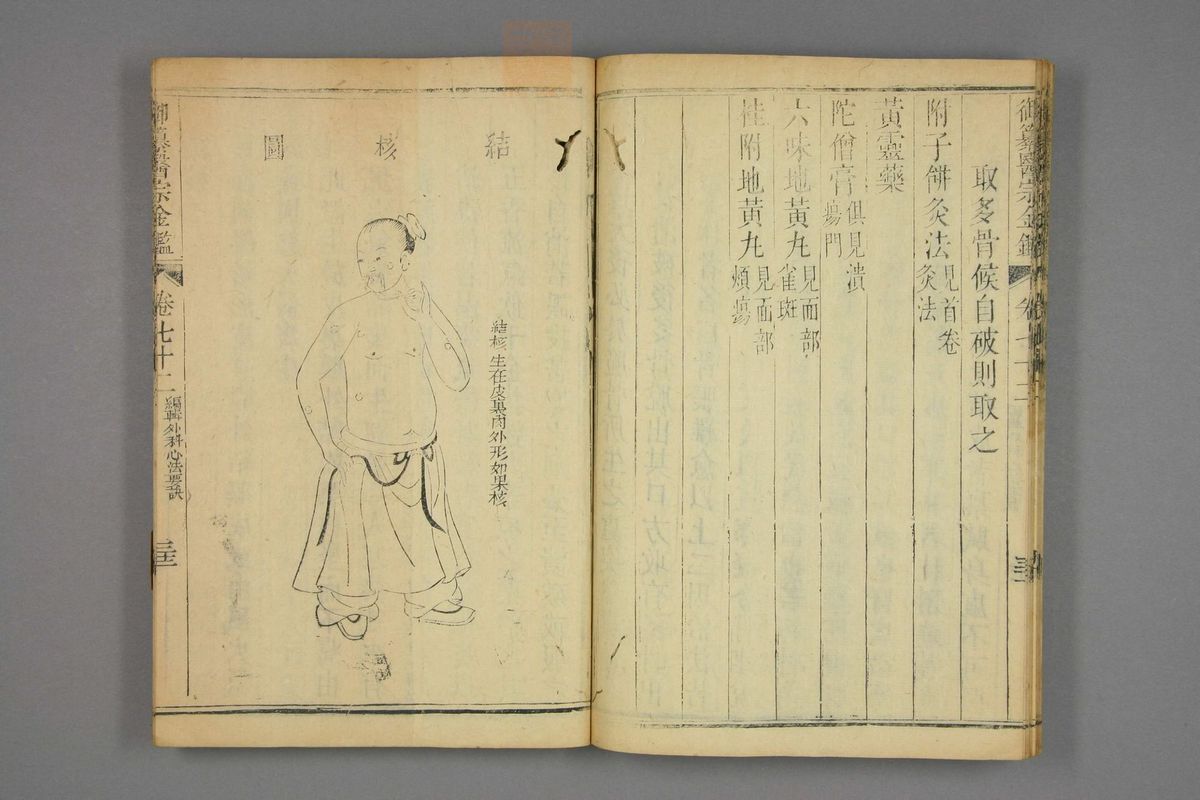 御纂醫宗金鑑
卷七十二
取多骨候自破則取之
附子餅灸法見首卷灸法
黃靈藥
陀僧膏俱見潰瘍門
六味地黃丸見面部雀斑
桂附地黃丸見面部頰瘍
結核圖
結核生在皮裏肉外形如果核
御纂醫宗金鑑
卷七十二
編輯外科心法要訣